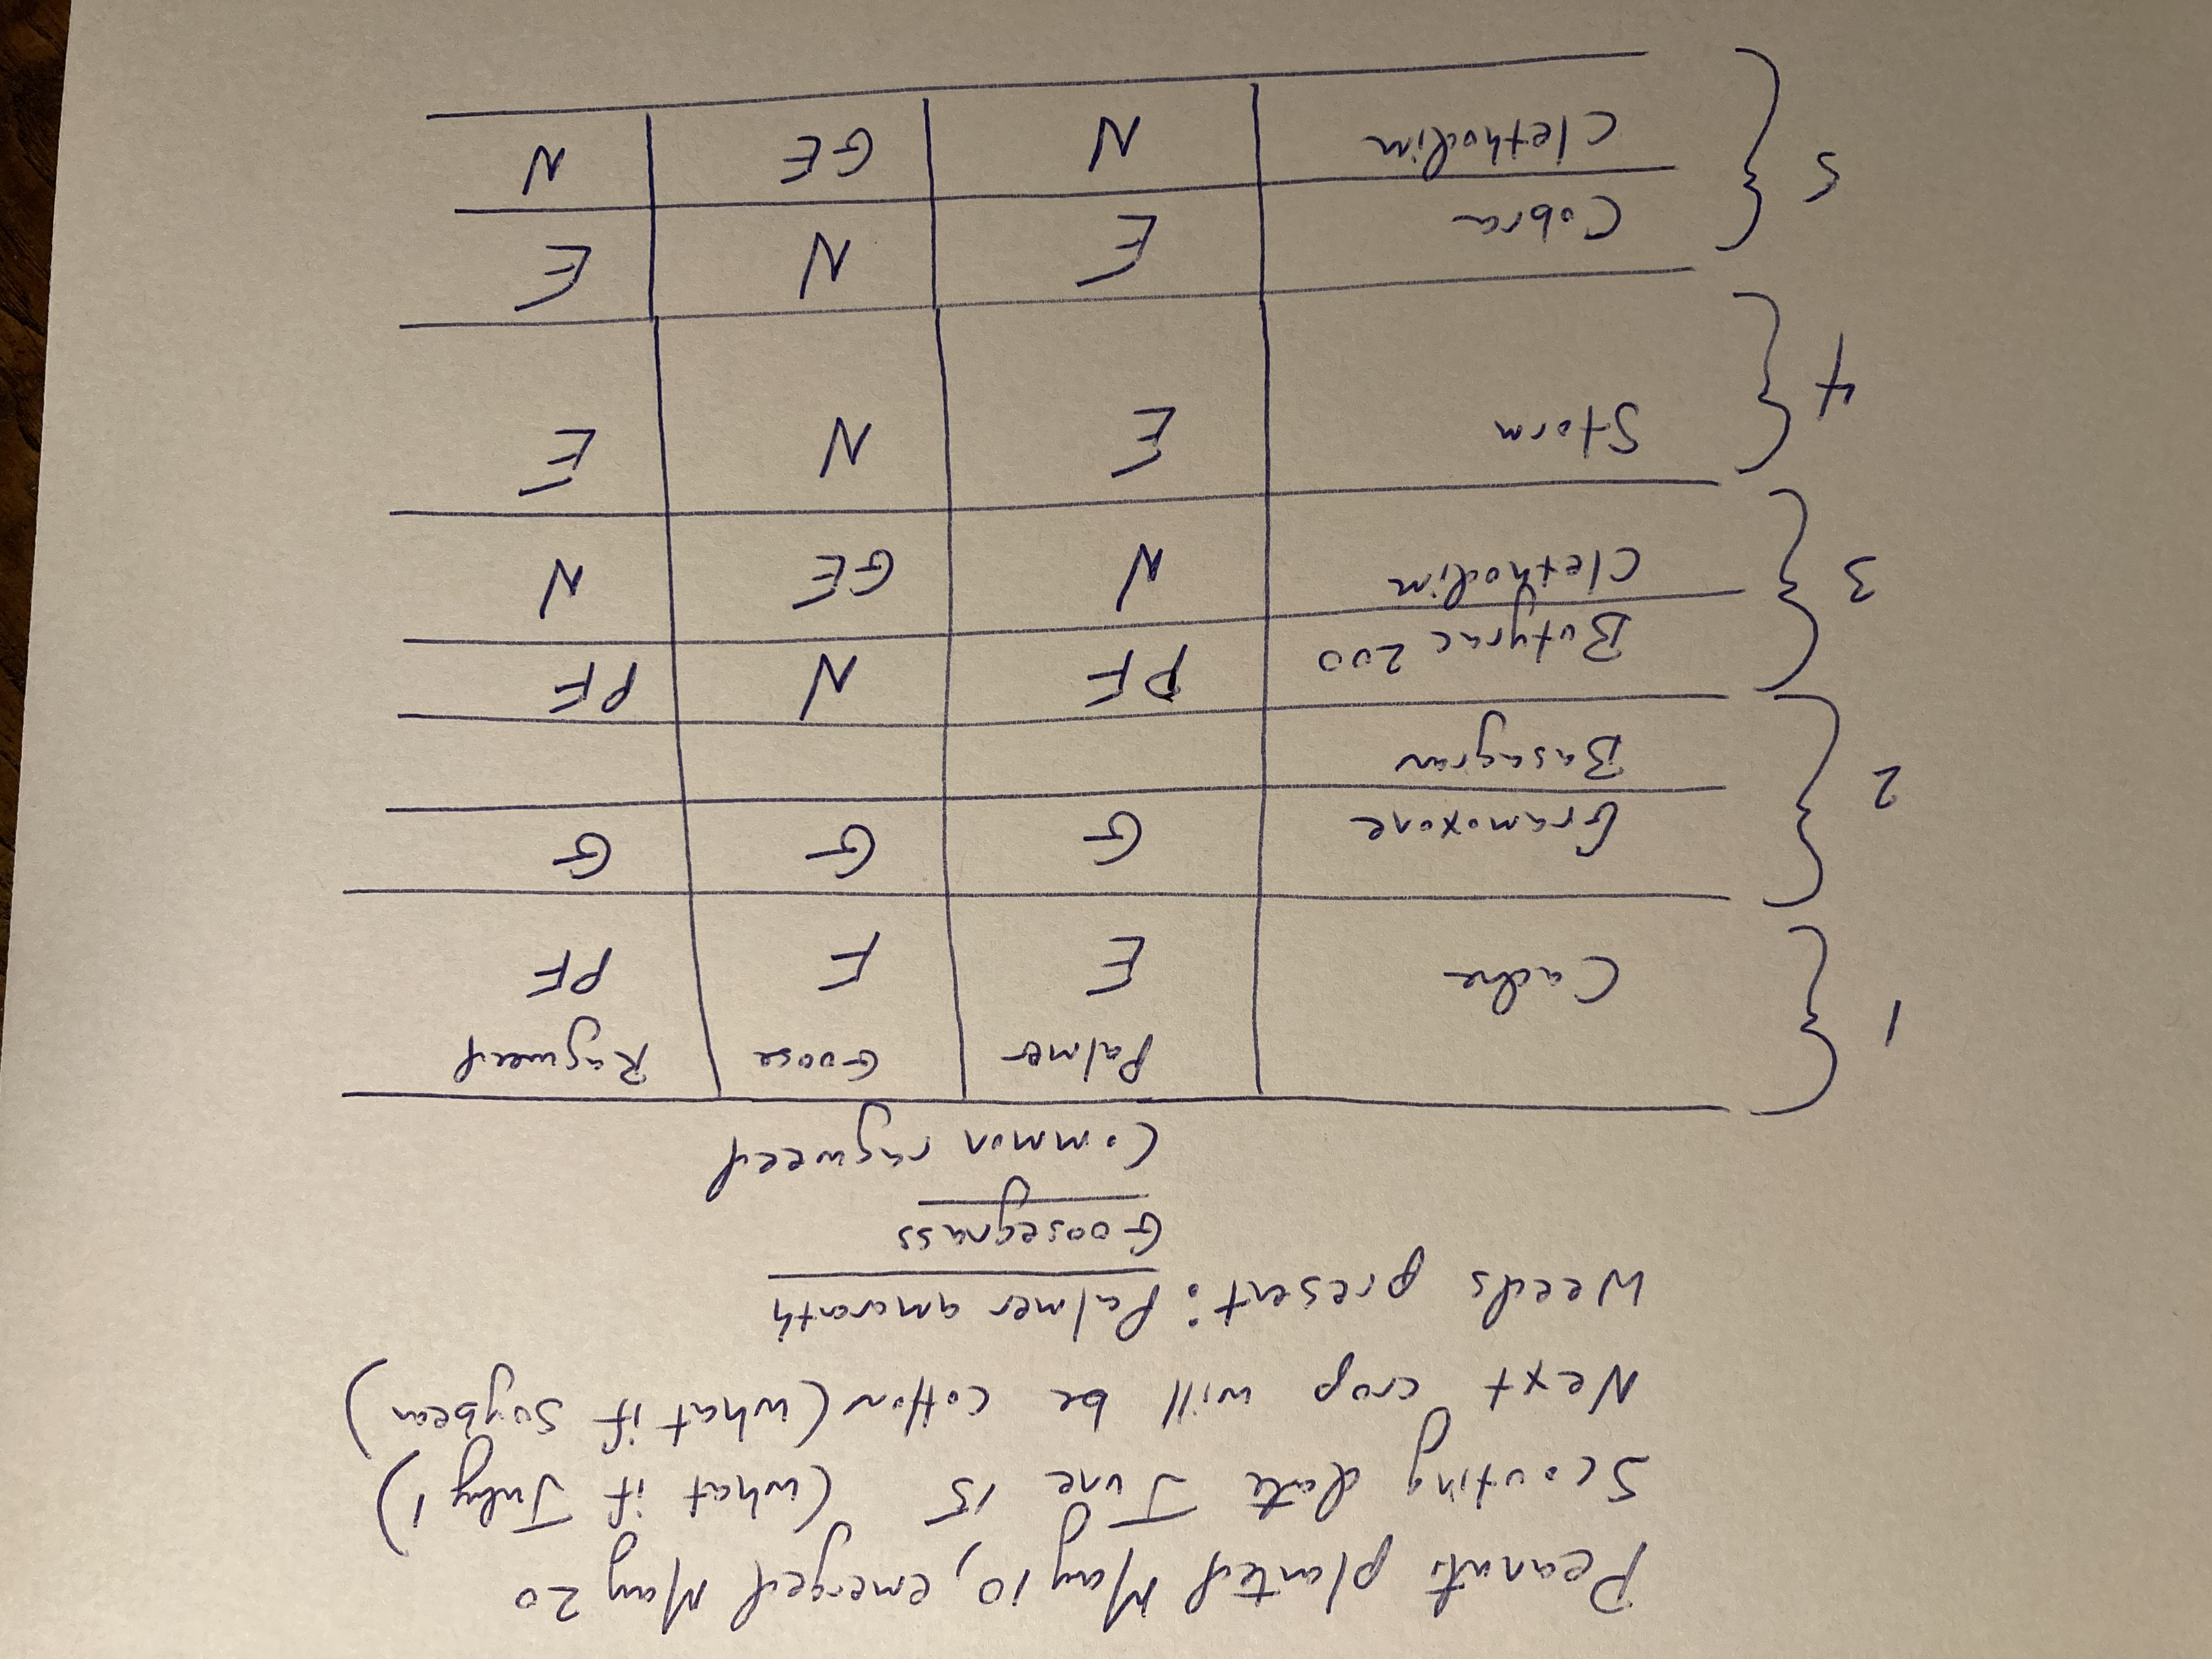 Peanuts planted May 10, emerged May 20
Scouting date June 15 (what if July 1)
Next crop will be cotton (what if soybean)
Weeds present: Palmer amaranth
Goosegrass
Common ragweed
Palmer Goose Ragweed
1 Cadre E F PF
2 Gramoxone G G G
Basagran
3 Butyrac 200 PF N PF
Clethodim N GE N
4 Storm E N E
5 Cobra E N E
Clethodim N GE N